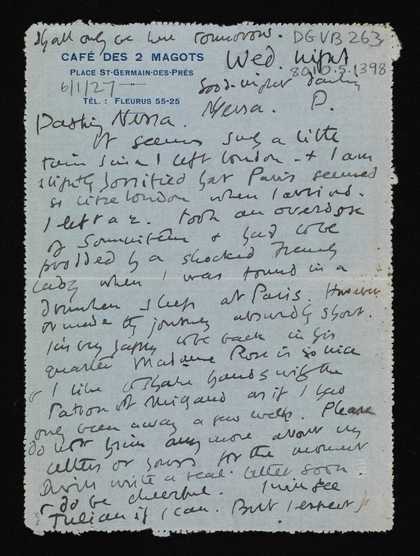 shall only be here tomorrow. DGVB 263
CAFÉ DES 2 MAGOTS
Wed. night
PLACE ST-GERMAIN-DES-PRÉS
8010.5.1398
6/1/27
Good-night darling
TÉL : FLEURUS 55-25
Nessa. D.
Darling Nessa.
It seems such a little
time since I left London - & I am
slightly horrified that Paris seemed
so like London when I arrived.
I left at 2. Took an overdose
of Somnifène & had to be
prodded by a shocked French
lady when I was found in a
drunken sleep at Paris. However
it made the journey absurdly short.
I am very happy to be back in this
quarter. Madame Rose is so nice
& I like to shake hands with the
Patron of Migand as if I had
only been away a few weeks. Please
do not think any more about my
letters or yours for the moment
I will write a real letter soon.
& do be cheerful. I will see
Julian if I can. But I expect I